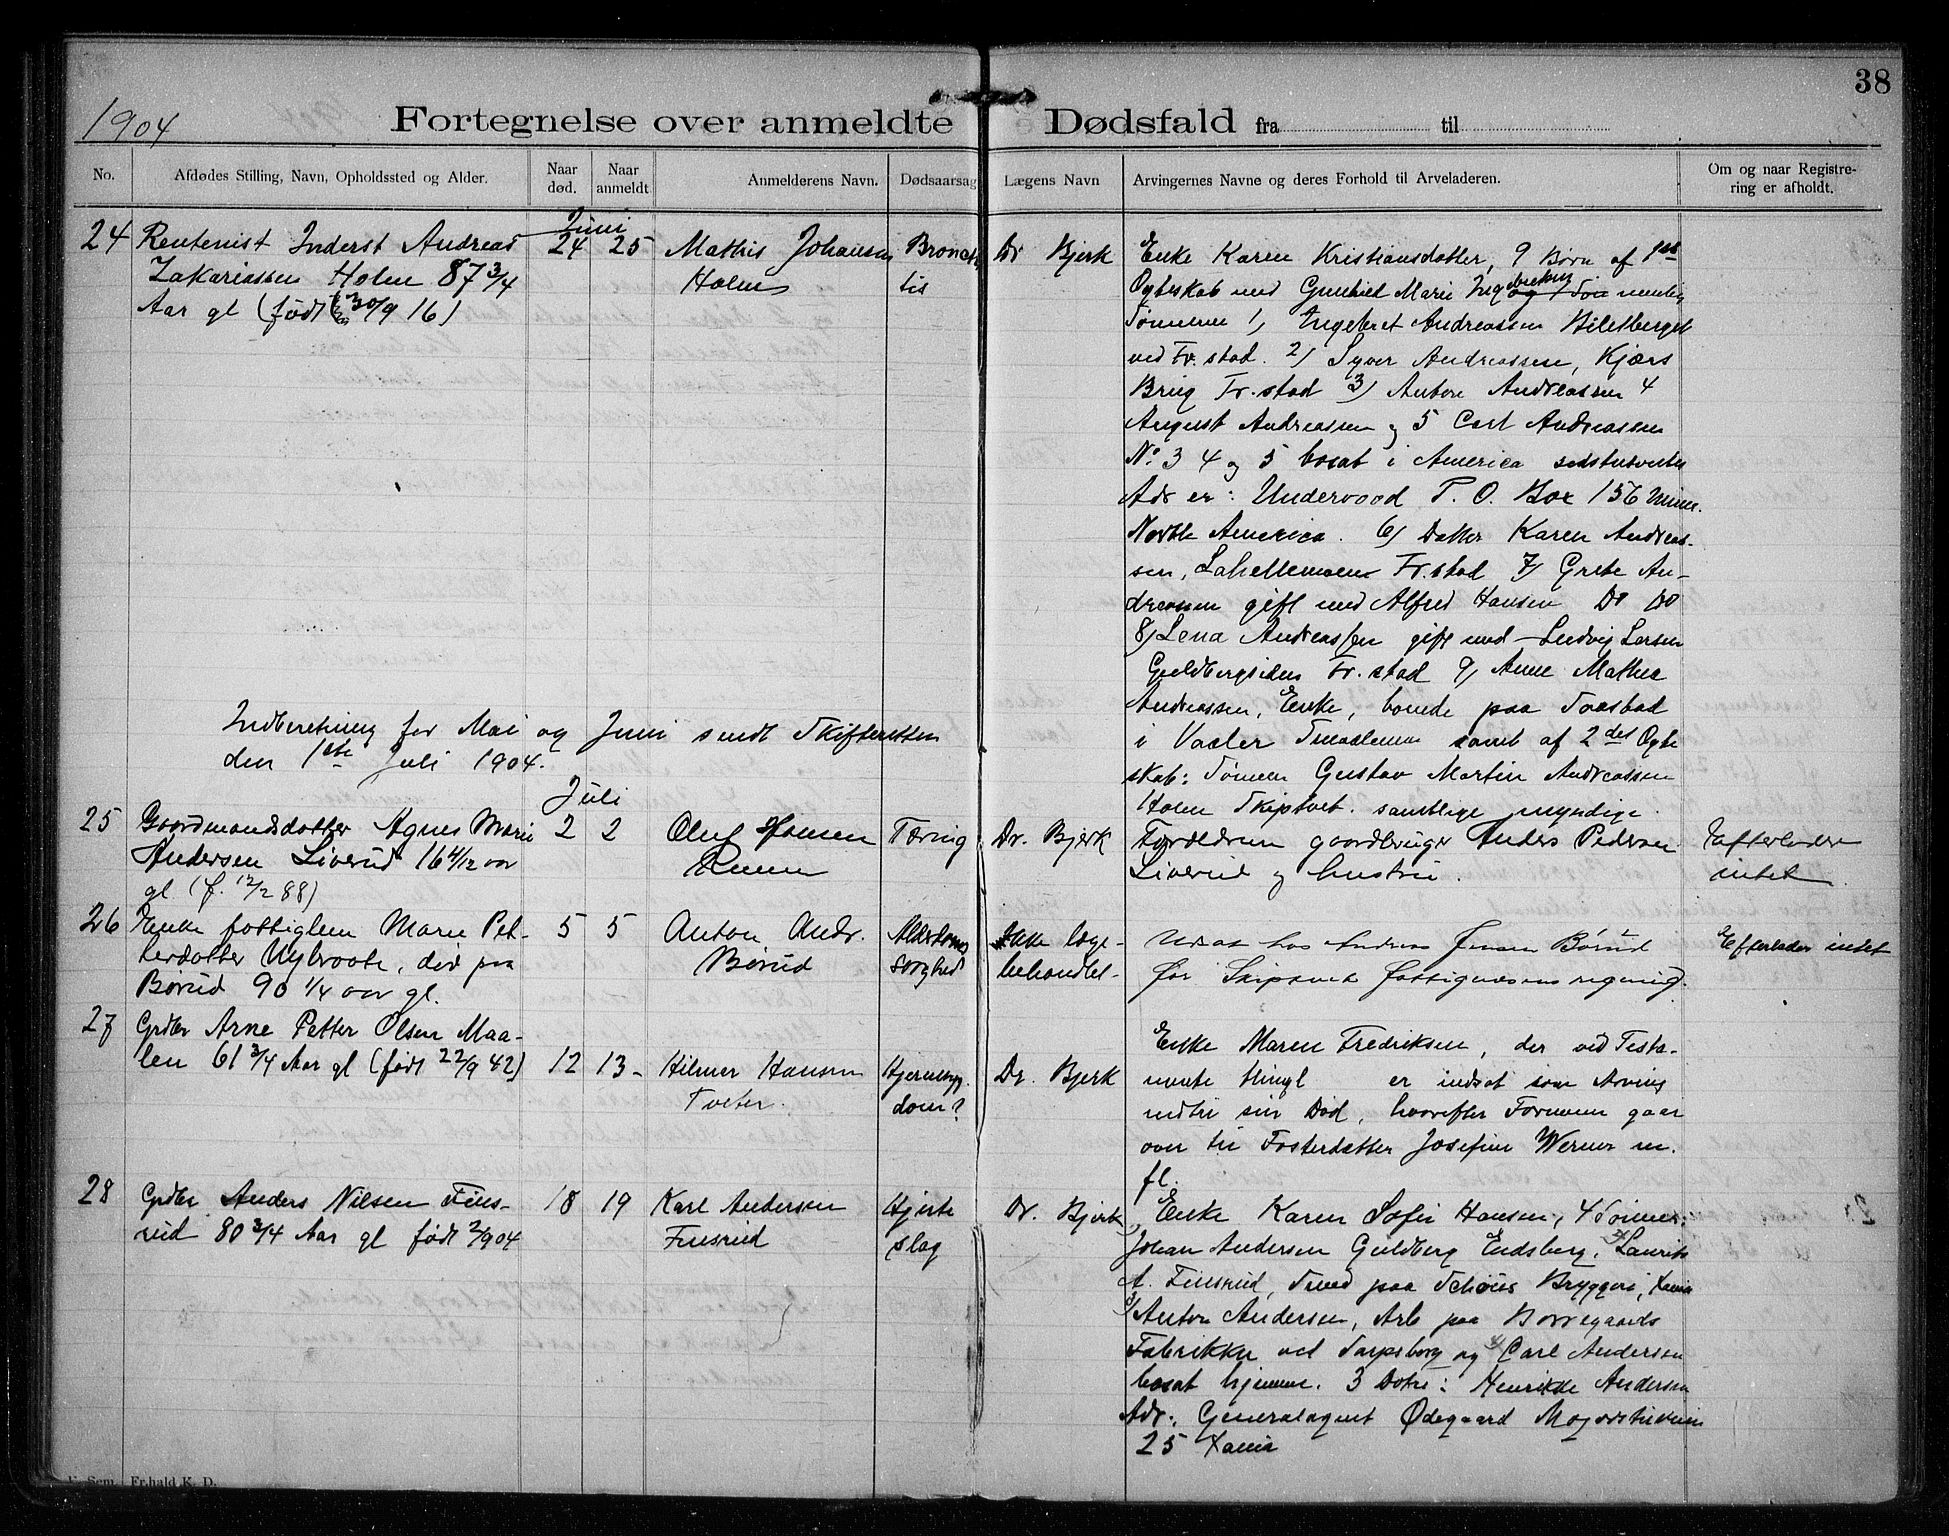 38
1904
Fortegnelse over anmeldte Dødsfald fra til
No.
Afdødes Stilling, Navn, Opholdssted og Alder.
Naar død.
Naar anmeldt
Anmelderens Navn.
Dødsaarsag
Lægens Navn
Arvingernes Navne og deres Forhold til Arveladeren.
Om og naar Registre-
ring er afholdt.
Juni
24 Rentenist Inderst Andreas 24 25 Mathis Johansen Bronchi Dr Bjerk
Zakariassen Holm 87 3/4 Holm tis
Aar gl (født 30/9 16)
Enke Karen Kristiansdatter, 9 Børn af 1ste
Egteskab med Gunhild Marie nemlig
Sønnerne 1) Engebret Andreassen Biletberget
ved Fr.stad. 2) Syver Andreassen, Kjærs
Brug Fr.stad 3) Antore Andreassen 4
August Andreassen og 5 Carl Andreassen
No 3 4 og 5 bosat i America
Adr er: Underwood P. O. Box 156 Minn.
North America. 6) Datter Karen Andreas-
sen, Lahellemoen Fr.stad 7) Grete An-
dreassen gift med Alfred Hansen Do Do
8) Lena Andreassen gift med Ludvig Larsen
Guldbergsiden Fr.stad 9) Anne Mathea
Andreassen, Enke, boende paa
i Vaaler Smaalenene samt af 2det Egte
skab: Sønnen Gustav Martin Andreassen
Holm Skiptvet. samtlige myndige.
Indberetning for Mai og Juni sendt Skifteretten
den 1ste Juli 1904.
Juli
25 Gaardmandsdatter Agnes Marie 2 2 Oluf Hansen Tæring Dr. Bjerk
Andersen Liverud 16 4/12 aar
gl (f. 12/2 88)
Forældrene gaardbruger Anders Pedersen
Liverud og hustru.
Efterlader
intet
26 Enke fattiglem Marie Pet- 5 5 Anton Andr. Alderdoms Ikke læge-
terdatter Nybraate, død paa Børud svaghed behandlet-
Børud 90 1/4 aar gl.
Udsat hos Andreas Jensen Børud
for Skiptvet fattigvæsens regning.
Efterlader intet
27 Grdbr Arne Petter Olsen Maa-
len 61 3/4 Aar gl (født 22/9 42) 12 13- Hilmer Hansen Hjertesyg- Dr. Bjerk
Tveter. dom?
Enke Maren Fredriksen, der ved Testa-
mente thingl er indsat som Arving
indtil sin Død, hvorefter Formuen gaar
over til Fosterdatter Josefine Werner m.
fl.
28 Grdbr. Anders Nilsen Fins- 18 19 Karl Andersen Hjerte Dr. Bjerk
rud 80 3/4 Aar gl født 2/904 Finsrud slag
Enke Karen Sofie Hansen, 4 Sønner:
Johan Andersen Guldberg Eidsberg, Laurits
A. Finsrud, Svend paa Schous Bryggeri, Xania
3) Anton Andersen, Arb paa Borregaards
Fabrikker ved Sarpsborg og 4) Carl Andersen
bosat hjemme. 3 Døtre: Henrikke Andersen
Adr: Generalagent Ødegaard Majorstuveien
25 Xania
E. Sem, Fr.hald K. D.